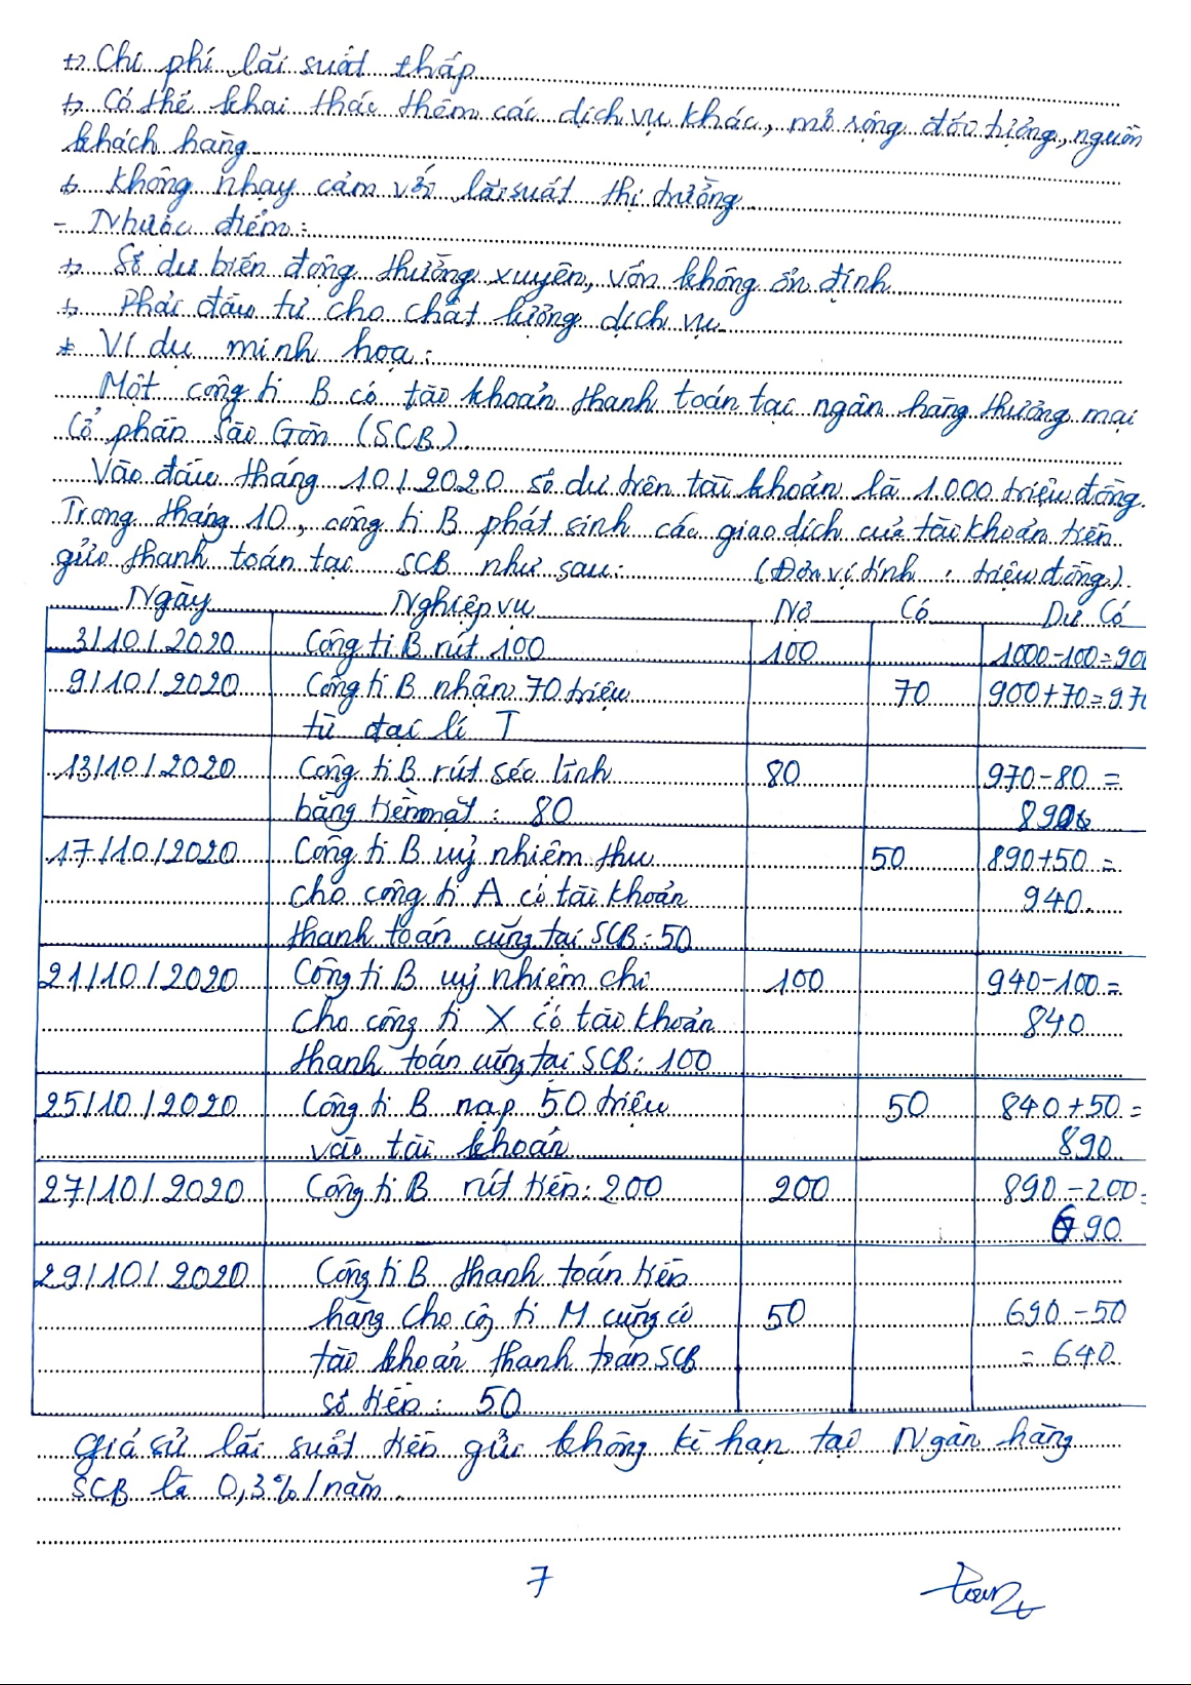 +> Chi phí lãi suất thấp
+> Có thể khai thác thêm các dịch vụ khác, mở rộng đối tượng, nguồn
khách hàng
+> Không nhạy cảm với lãi suất thị trường.
- Nhược điểm:
+> Số dư biến động thường xuyên, vốn không ổn định
+> Phải đầu tư cho chất lượng dịch vụ
* Ví dụ minh hoạ:
Một công ti B có tài khoản thanh toán tại ngân hàng thương mại
Cổ phần Sài Gòn (SCB).
Vào đầu tháng 10/2020 số dư trên tài khoản là 1.000 triệu đồng.
Trong tháng 10, công ti B phát sinh các giao dịch của tài khoản tiền
gửi thanh toán tại SCB như sau: (Đơn vị tính: triệu đồng).
Ngày Nghiệp vụ Nợ Có Dư Có
3/10/2020 Công ti B rút 100 100 1000-100=900
9/10/2020 Công ti B nhận 70 triệu 70 900+70=970
từ đại lí T
13/10/2020 Công ti B rút séc lĩnh 80 970-80=
bằng tiền mặt: 80 890
17/10/2020 Công ti B uỷ nhiệm thu 50 890+50=
cho công ti A có tài khoản 940.
thanh toán cũng tại SCB: 50
21/10/2020 Công ti B uỷ nhiệm chi 100 940-100=
cho công ti X có tài khoản 840
thanh toán cũng tại SCB: 100
25/10/2020 Công ti B nạp 50 triệu 50 840+50=
vào tài khoản 890
27/10/2020 Công ti B rút tiền: 200 200 890-200=
690
29/10/2020 Công ti B thanh toán tiền
hàng cho cg ti M cũng có 50 690-50
tài khoản thanh toán SCB = 640.
số tiền: 50
Giả sử lãi suất tiền gửi không kì hạn tại Ngân hàng
SCB là 0,3%/năm.
7